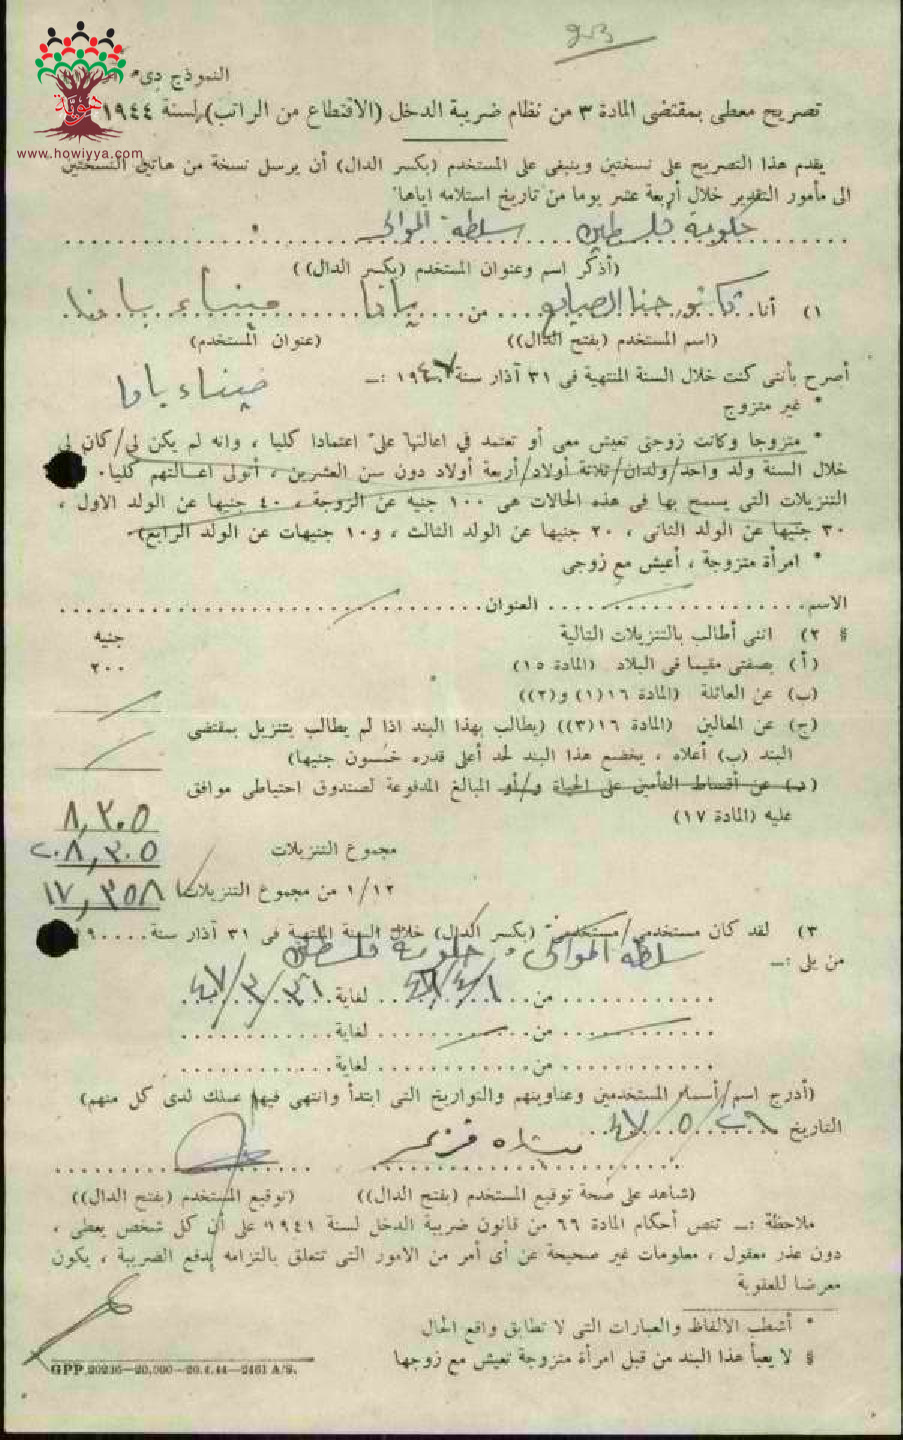 النموذج دى
تصريح معطى بمقتضى المادة ٣ من نظام ضريبة الدخل (الاقتطاع من الراتب) لسنة ١٩٤٤
هوية
www.howiyya.com
يقدم هذا التصريح على نسختين وينبغى على المستخدم (بكسر الدال) أن يرسل نسخة من هاتين النسختين
الى مأمور التقدير خلال أربعة عشر يوما من تاريخ استلامه اياها
حكومة فلسطين سلطة الموانى
(أذكر اسم وعنوان المستخدم (بكسر الدال))
١) أنا حنا الصايغ من يافا ميناء يافا
(اسم المستخدم (بفتح الدال)) (عنوان المستخدم)
أصرح بأننى كنت خلال السنة المنتهية فى ٣١ آذار سنة ١٩٤٧ :ـ
* غير متزوج ميناء يافا
* متزوجا وكانت زوجتى تعيش معى أو تعتمد في اعالتها على اعتمادا كليا ، وانه لم يكن لى/كان لى
خلال السنة ولد واحد/ولدان/ثلاثة أولاد/أربعة أولاد دون سن العشرين ، أتولى اعالتهم كليا.
التنزيلات التى يسمح بها فى هذه الحالات هى ١٠٠ جنيه عن الزوجة ، ٤٠ جنيها عن الولد الاول ،
٣٠ جنيها عن الولد الثانى ، ٢٠ جنيها عن الولد الثالث ، و١٠ جنيهات عن الولد الرابع)
* امرأة متزوجة ، أعيش مع زوجى
الاسم العنوان
§ ٢) اننى أطالب بالتنزيلات التالية جنيه
(أ) بصفتى مقيما فى البلاد (المادة ١٥) ٢٠٠
(ب) عن العائلة (المادة ١٦(١) و(٢))
(ج) عن المعالين (المادة ١٦(٣)) (يطالب بهذا البند اذا لم يطالب بتنزيل بمقتضى
البند (ب) أعلاه ، يخضع هذا البند لحد أعلى قدره خمسون جنيها)
(د) عن أقساط التأمين على الحياة و/أو المبالغ المدفوعة لصندوق احتياطى موافق
عليه (المادة ١٧) ٨,٣٠٥
مجموع التنزيلات ٢٠٨,٣٠٥
١/١٢ من مجموع التنزيلات ١٧,٣٥٨
٣) لقد كان مستخدمى/مستخدمى (بكسر الدال) خلال السنة المنتهية فى ٣١ آذار سنة
من يلى :ـ سلطة الموانى حكومة فلسطين
من ١/٤/٤٦ لغاية ٣١/٣/٤٧
من لغاية
من لغاية
(أدرج اسم/أسماء المستخدمين وعناوينهم والتواريخ التى ابتدأ وانتهى فيها عملك لدى كل منهم)
التاريخ ٢٦/٥/٤٧
(شاهد على صحة توقيع المستخدم (بفتح الدال)) (توقيع المستخدم (بفتح الدال))
ملاحظة :ـ تنص أحكام المادة ٦٦ من قانون ضريبة الدخل لسنة ١٩٤١ على أن كل شخص يعطى ،
دون عذر معقول ، معلومات غير صحيحة عن أى أمر من الامور التى تتعلق بالتزامه بدفع الضريبة ، يكون
معرضا للعقوبة
* أشطب الالفاظ والعبارات التى لا تطابق واقع الحال
§ لا يعبأ هذا البند من قبل امرأة متزوجة تعيش مع زوجها
GPP 20236—20,000—20.4.44—2461 A/S.